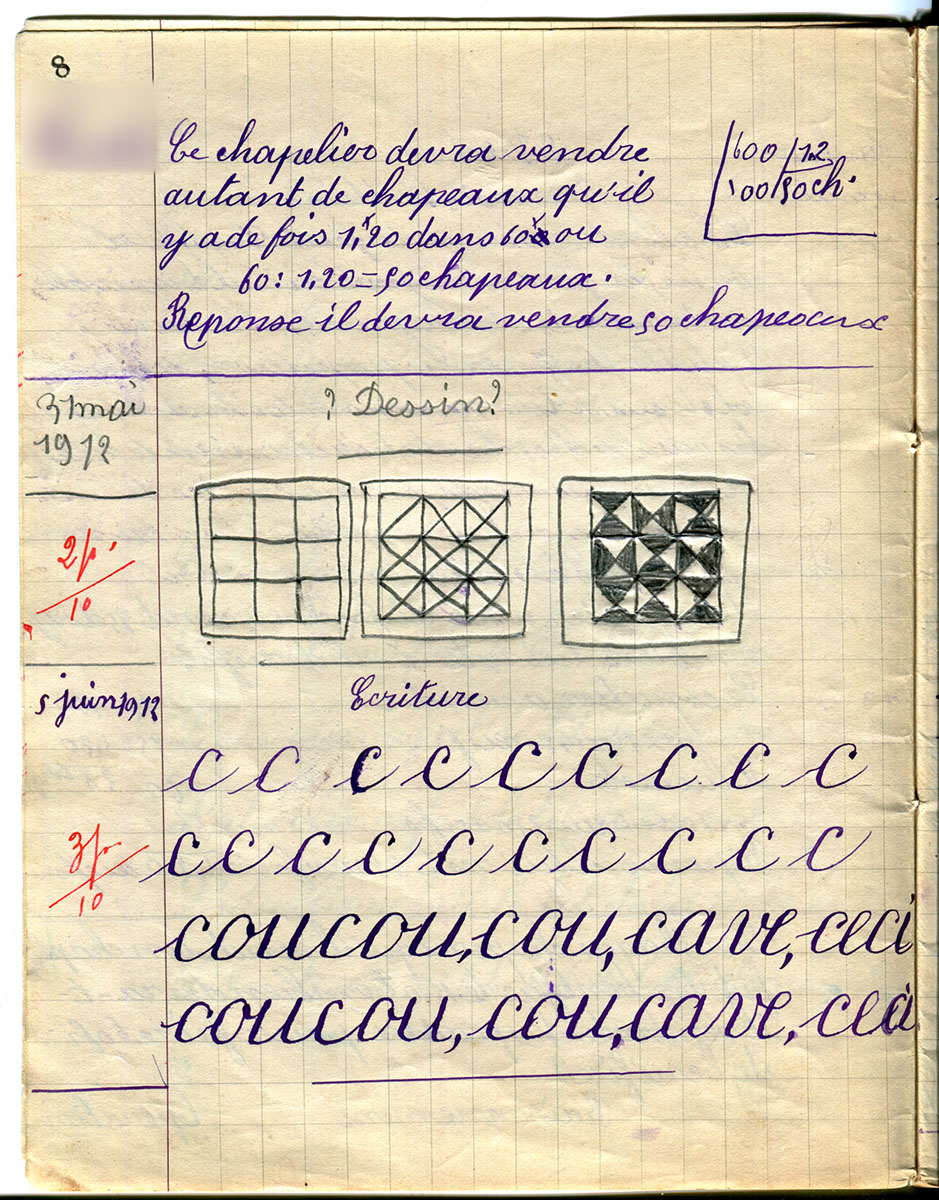 8
Le chapelier devra vendre
autant de chapeaux qu'il
y a de fois 1,20 dans 60 ou
60 : 1,20 = 50 chapeaux.
Reponse il devra vendre 50 chapeaux
600 / 12
00 50 ch.
31 mai
1912
? Dessin ?
2 p.
10
5 juin 1912
Ecriture
c c c c c c c c c
c c c c c c c c c c
3 p.
10
coucou, cou, cave, ceci
coucou, cou, cave, ceci